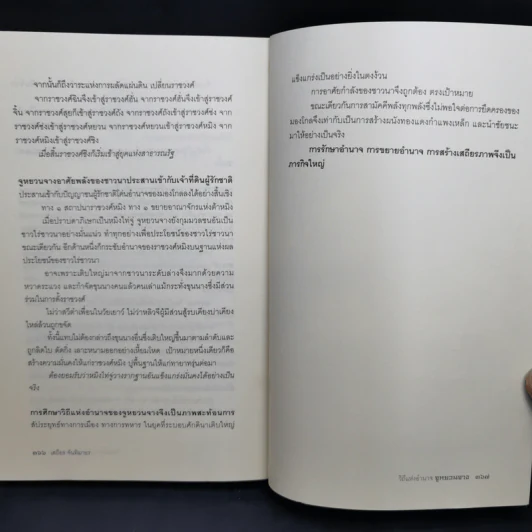 จากนั้นก็ถึงวาระแห่งการผลัดแผ่นดิน เปลี่ยนราชวงศ์
จากราชวงศ์ฉินจึงเข้าสู่ราชวงศ์ฮั่น จากราชวงศ์ฮั่นจึงเข้าสู่ราชวงศ์
จิ้น จากราชวงศ์สุยก็เข้าสู่ราชวงศ์ถัง จากราชวงศ์ถังก็เข้าสู่ราชวงศ์ซ่ง จาก
ราชวงศ์ซ่งเข้าสู่ราชวงศ์หยวน จากราชวงศ์หยวนเข้าสู่ราชวงศ์หมิง จาก
ราชวงศ์หมิงเข้าสู่ราชวงศ์ชิง
เมื่อสิ้นราชวงศ์ชิงก็เริ่มเข้าสู่ยุคแห่งสาธารณรัฐ
จูหยวนจางอาศัยพลังของชาวนาประสานเข้ากับเจ้าที่ดินผู้รักชาติ
ประสานเข้ากับปัญญาชนผู้รักชาติโค่นอำนาจของมองโกลลงได้อย่างสิ้นเชิง
ทาง ๑ สถาปนาราชวงศ์หมิง ทาง ๑ ขยายอาณาจักรแห่งต้าหมิง
เมื่อปราบดาภิเษกเป็นหมิงไท่จู่ จูหยวนจางยังกุมมวลชนอันเป็น
ชาวไร่ชาวนาอย่างมั่นแน่ว ทำทุกอย่างเพื่อประโยชน์ของชาวไร่ชาวนา
ขณะเดียวกัน อีกด้านหนึ่งก็กระชับอำนาจของราชวงศ์หมิงบนฐานแห่งผล
ประโยชน์ของชาวไร่ชาวนา
อาจเพราะเติบใหญ่มาจากชาวนาระดับล่างจึงมากด้วยความ
หวาดระแวง และกำจัดขุนนางคนแล้วคนเล่าแม้กระทั่งขุนนางซึ่งมีส่วน
ร่วมในการตั้งราชวงศ์
ไม่ว่าสวีต๋าเพื่อนในวัยเยาว์ ไม่ว่าหลิวจีผู้มีส่วนสู้รบเคียงบ่าเคียง
ไหล่ล้วนถูกขจัด
ทั้งนี้แทบไม่ต้องกล่าวถึงขุนนางอื่นซึ่งเติบใหญ่ขึ้นมาตามลำดับและ
ถูกลิดใบ ตัดกิ่ง เผาะหนามออกอย่างเหี้ยมโหด เป้าหมายหนึ่งเดียวก็คือ
สร้างความมั่นคงให้แก่ราชวงศ์หมิง ปูพื้นฐานให้แก่ทายาทรุ่นต่อมา
ต้องยอมรับว่าหมิงไท่จู่วางรากฐานอันแข็งแกร่งมั่นคงได้อย่างเป็น
จริง
การศึกษาวิถีแห่งอำนาจของจูหยวนจางจึงเป็นภาพสะท้อนการ
สัประยุทธ์ทางการเมือง ทางการทหาร ในยุคที่ระบอบศักดินาเติบใหญ่
๓๖๖ เสถียร จันทิมาธร
แข็งแกร่งเป็นอย่างยิ่งในตงง้วน
การอาศัยกำลังของชาวนาจึงถูกต้อง ตรงเป้าหมาย
ขณะเดียวกันการสามัคคีพลังทุกพลังซึ่งไม่พอใจต่อการยึดครองของ
มองโกลจึงเท่ากับเป็นการสร้างผนังทองแดงกำแพงเหล็ก และนำชัยชนะ
มาให้อย่างเป็นจริง
การรักษาอำนาจ การขยายอำนาจ การสร้างเสถียรภาพจึงเป็น
ภารกิจใหญ่
วิถีแห่งอำนาจ จูหยวนจาง ๓๖๗